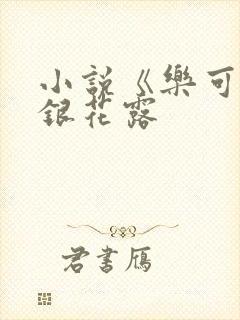 小說《樂可
銀花露
君書鴈